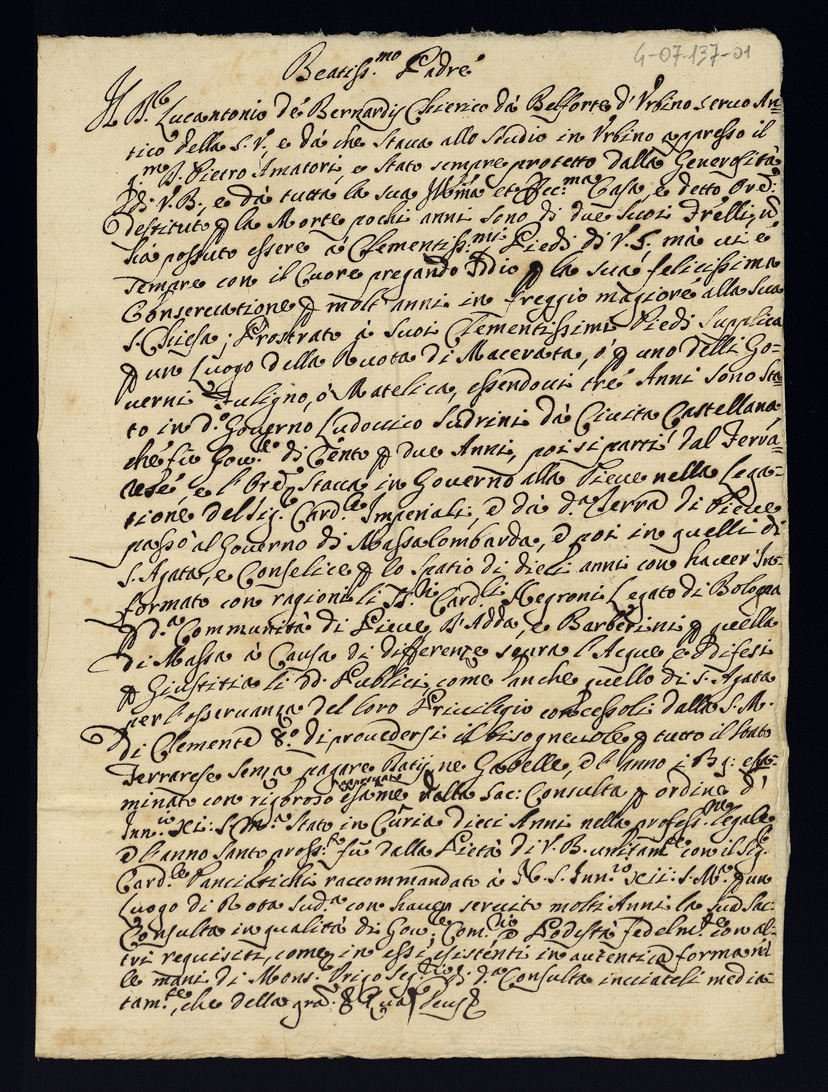 4-07-137-01
Beatiss.mo Padre
Lucantonio de Bernardis Chierico da Belforte d'Urbino servo An=
tico della S. V. e da che stava allo studio in Urbino appresso il
q.m D. Pietro Amatori, e stato sempre protetto dalla Generosità
di V. B., e da tutta la sua Ill.ma et Ecc.ma Casa, e detto Ore:
destituto p la Morte pochi anni sono di due suoi Frelli
ha possuto essere a Clementiss.mi Piedi di V. S. ma vi è
sempre con il Cuore pregando Iddio p la sua felicissima
Conservatione p molt'anni in freggio magiore alla sua
S. Chiesa; Prostrato a suoi Clementissimi Piedi supplica
p un Luogo della Ruota di Macerata, ò p uno delli Go=
verni Fuligno, ò Matelica, essendovi tre Anni sono sta
to in d.o Governo Ludovico Sudrini da Civita Castellana
che fu Gov.re di Cento p due Anni, poi si partì dal Ferra=
rese, e l'Ore stava in Governo alla Pieve nella Lega=
tione del Sig. Card.le Imperiali, e da d.a Terra di Pieve
passò al Governo di Massalombarda, e poi in quelli di
S. Agata, e Conselice p lo spatio di dieci anni con haver In=
formato con ragioni li Card.li Negroni Legato di Bologna
p d.a Communità di Pieve, D'Adda, e Barberini p quella
di Massa a Causa di differenze sovra l'Acque e difesi
p Giustitia li dd. Publici, come l'anche quello di S. Agata
per l'osservanza del loro Privilegio concessoli dalla S. M.
di Clemente 8.o di provedersi il bisognevole p tutto il stato
Ferrarese senza pagare Datij, ne Gabelle, e l'anno esa=
minato con rigoroso esame della Sac: Consulta p ordine d'
Inn.io XI: S. M.a stato in Curia dieci Anni nella profess.ne legale
e l'anno Santo pross.to fu dalla Pietà di V. B. unitam.te con il Sig.
Card.le Panciatichi raccommandato a N. S. Inn.io XII: S. M.a p un
Luogo di Rota sud.a con haver servito molti Anni la sud. Sac:
Consulta in qualità di Gov.re, Com.rio, e Podestà fedelm.te con al=
tri requisiti, come in essi esistenti in autentica forma
le mani di Mons. Origo Seg.rio di d.a Consulta inviateli media=
tam.te, che della gra.